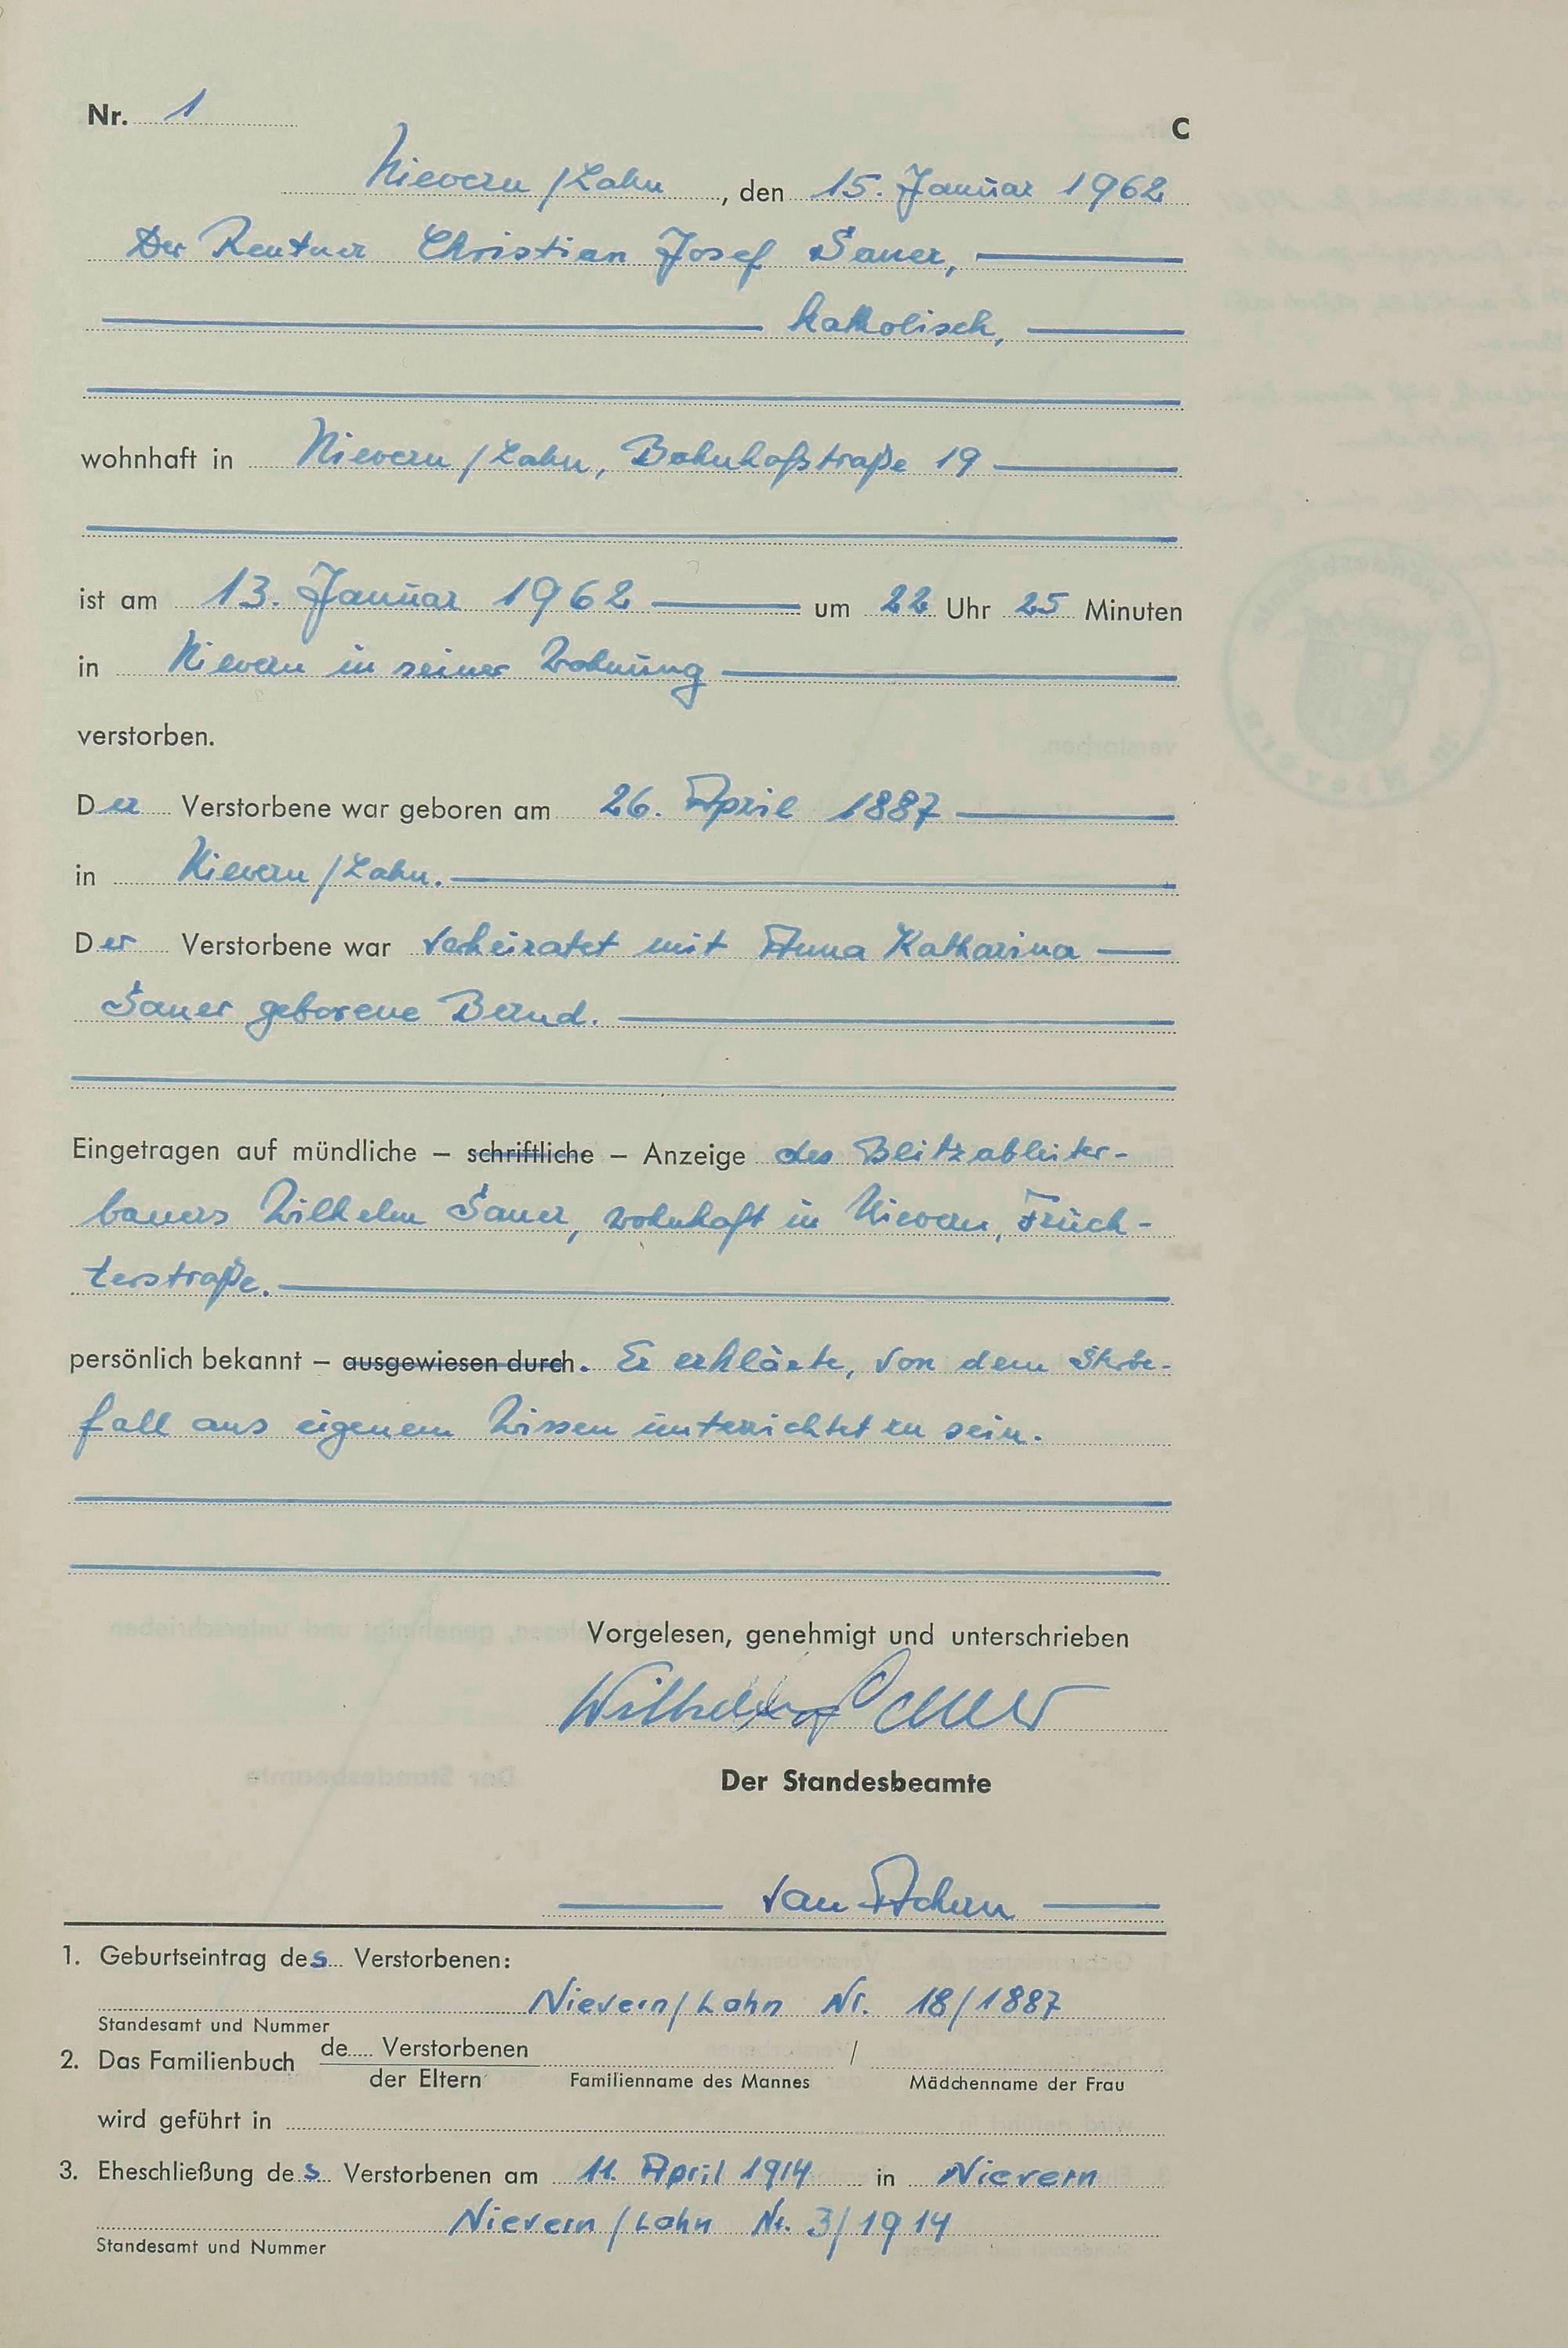 Nr. 1
C
Nievern/Lahn, den 15. Januar 1962
Der Rentner Christian Josef Sauer,
katholisch,
wohnhaft in Nievern/Lahn, Bahnhofstraße 19
ist am 13. Januar 1962 um 22 Uhr 25 Minuten
in Nievern in seiner Wohnung
verstorben.
Der Verstorbene war geboren am 26. April 1887
in Nievern/Lahn.
Der Verstorbene war verheiratet mit Anna Katharina
Sauer geborene Bernd.
Eingetragen auf mündliche – schriftliche – Anzeige des Blitzableiter-
bauers Wilhelm Sauer, wohnhaft in Nievern, Früch-
terstraße.
persönlich bekannt – ausgewiesen durch. Er erklärte, von dem Sterbe-
fall aus eigenem Wissen unterrichtet zu sein.
Vorgelesen, genehmigt und unterschrieben
Wilhelm Sauer
Der Standesbeamte
van
1. Geburtseintrag des Verstorbenen:
Nievern/Lahn Nr. 18/1887
Standesamt und Nummer
2. Das Familienbuch de Verstorbenen /
der Eltern Familienname des Mannes Mädchenname der Frau
wird geführt in
3. Eheschließung des Verstorbenen am 11. April 1914 in Nievern
Nievern/Lahn Nr. 3/1914
Standesamt und Nummer